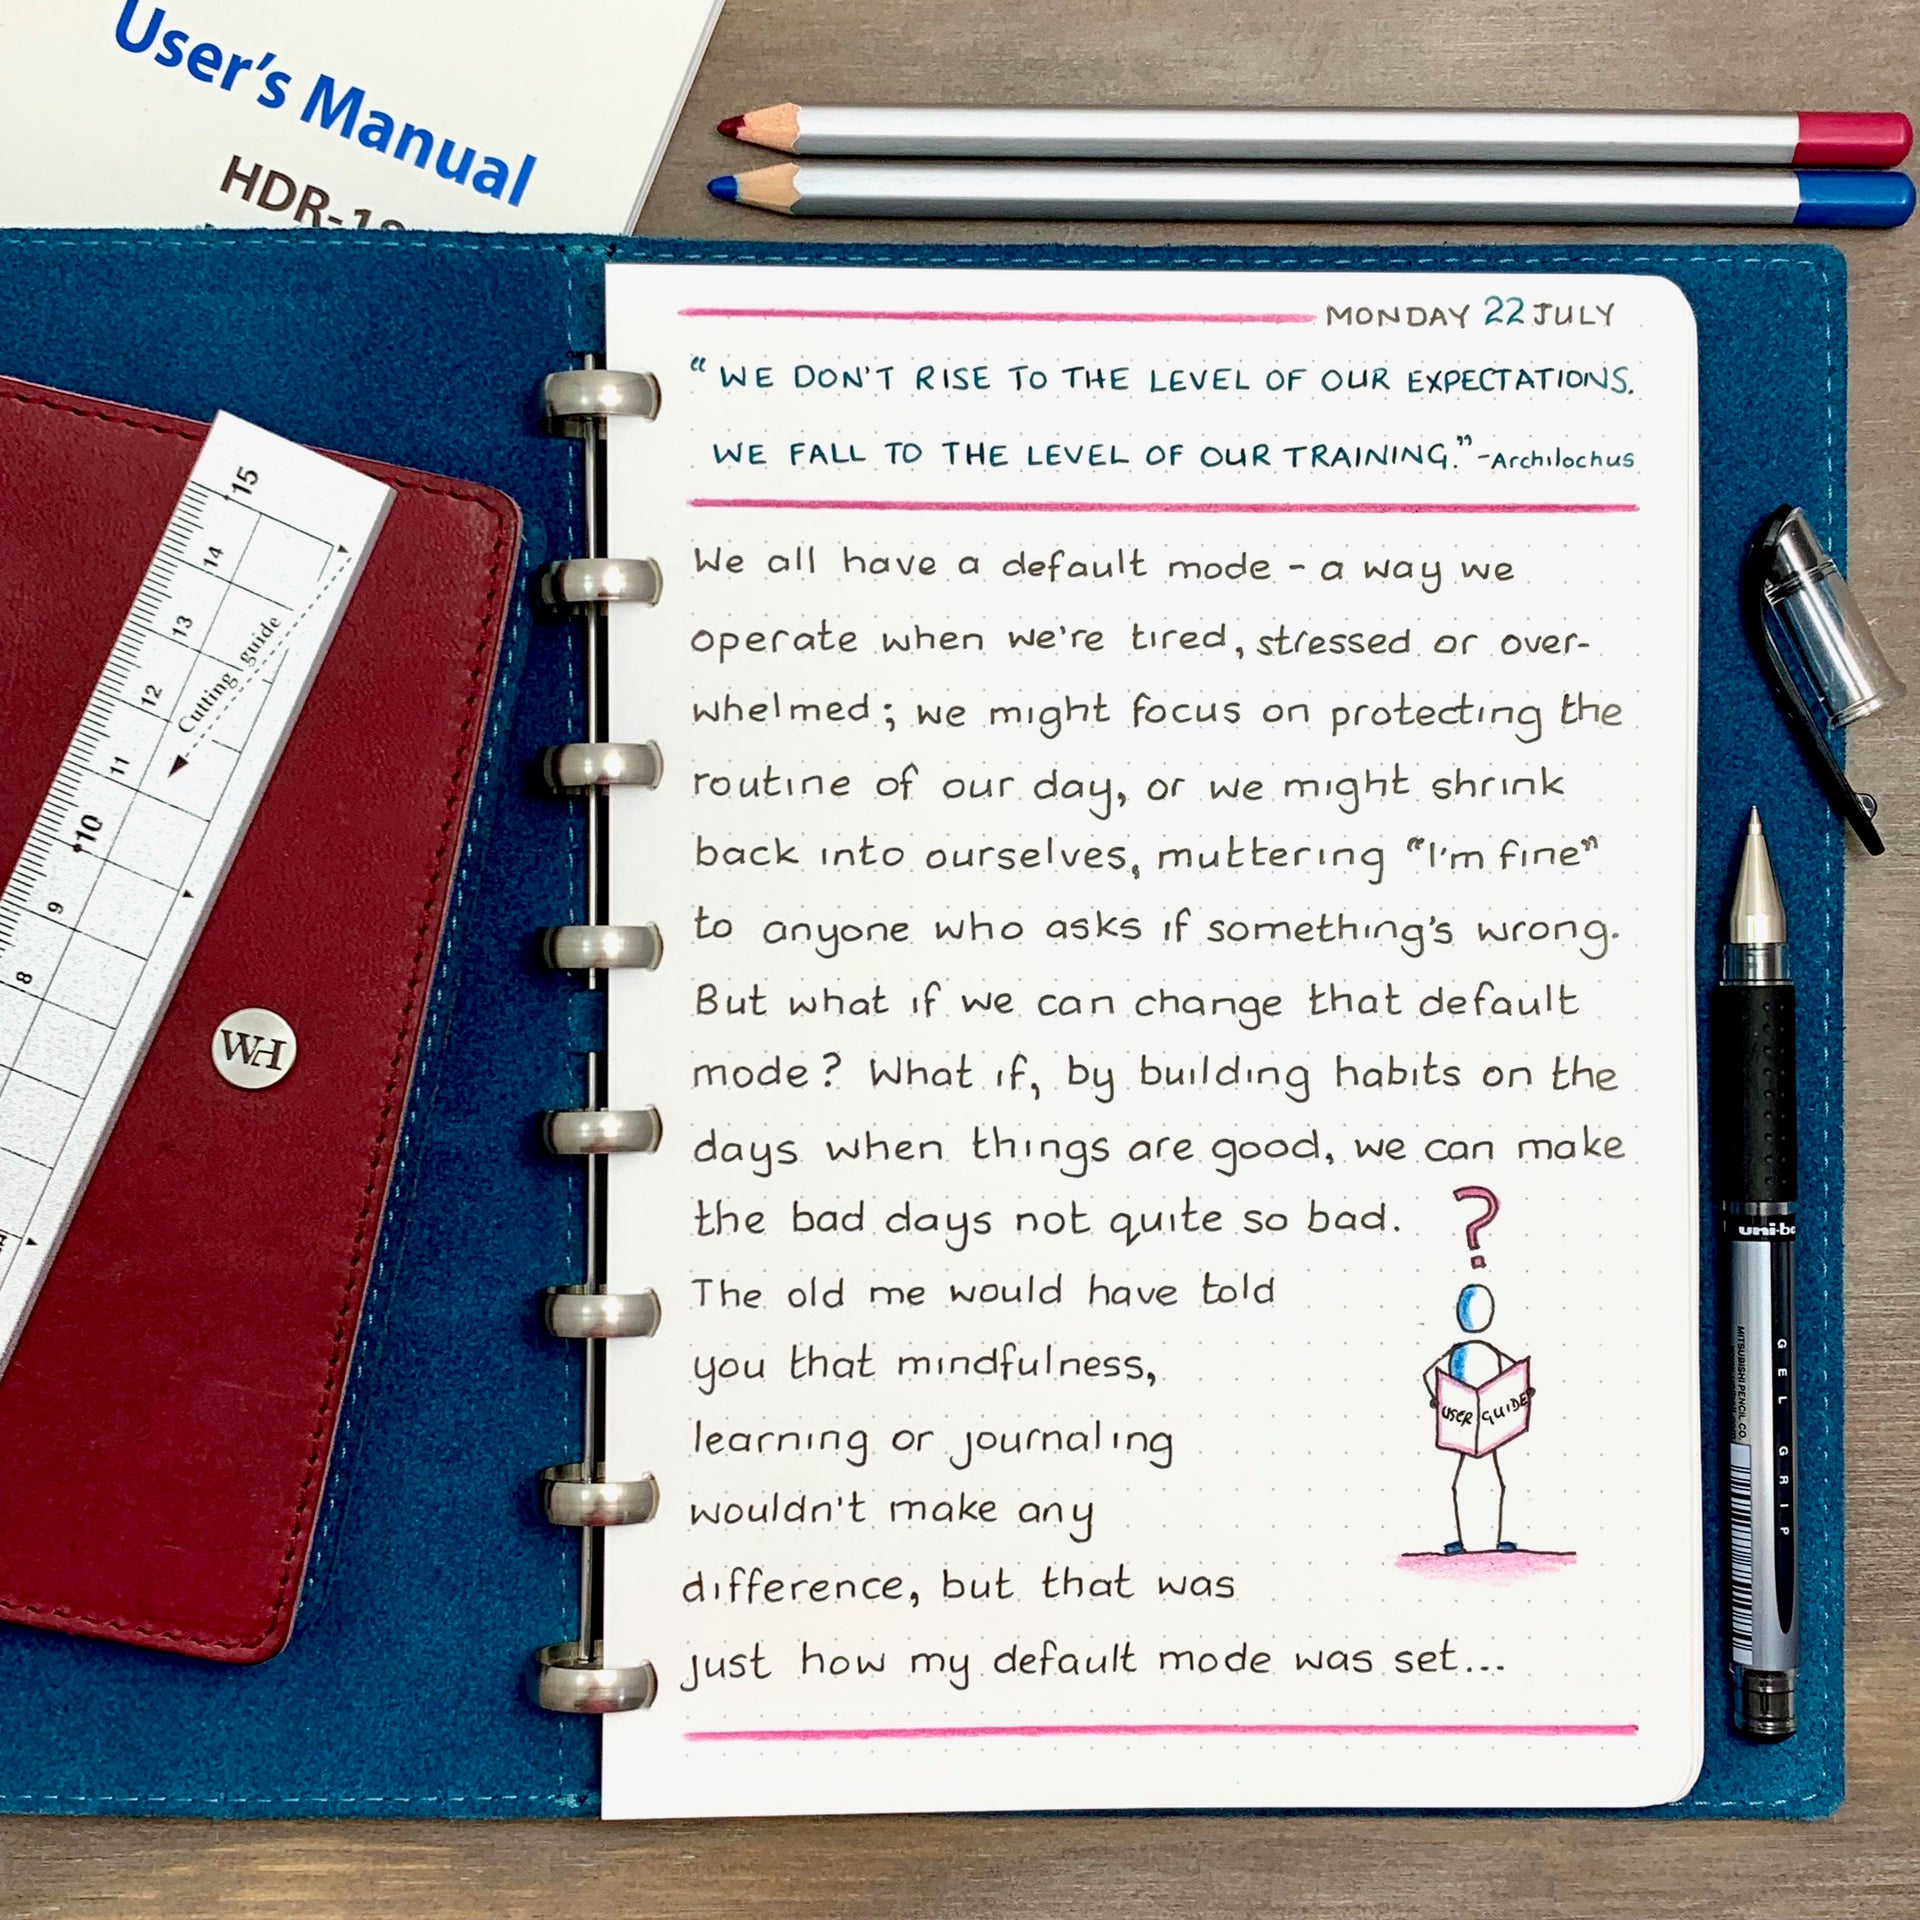 User's Manual
HDR-18
MONDAY 22 JULY
“WE DON'T RISE TO THE LEVEL OF OUR EXPECTATIONS.
WE FALL TO THE LEVEL OF OUR TRAINING.” -Archilochus
We all have a default mode - a way we
operate when we're tired, stressed or over-
whelmed; we might focus on protecting the
routine of our day, or we might shrink
back into ourselves, muttering “I'm fine”
to anyone who asks if something's wrong.
But what if we can change that default
mode? What if, by building habits on the
days when things are good, we can make
the bad days not quite so bad.
?
The old me would have told
you that mindfulness,
learning or journaling
wouldn't make any
difference, but that was
just how my default mode was set...
USER GUIDE
15
14
13
12
11
10
9
8
Cutting guide
WH
uni-ba
GEL GRIP
MITSUBISHI PENCIL CO.